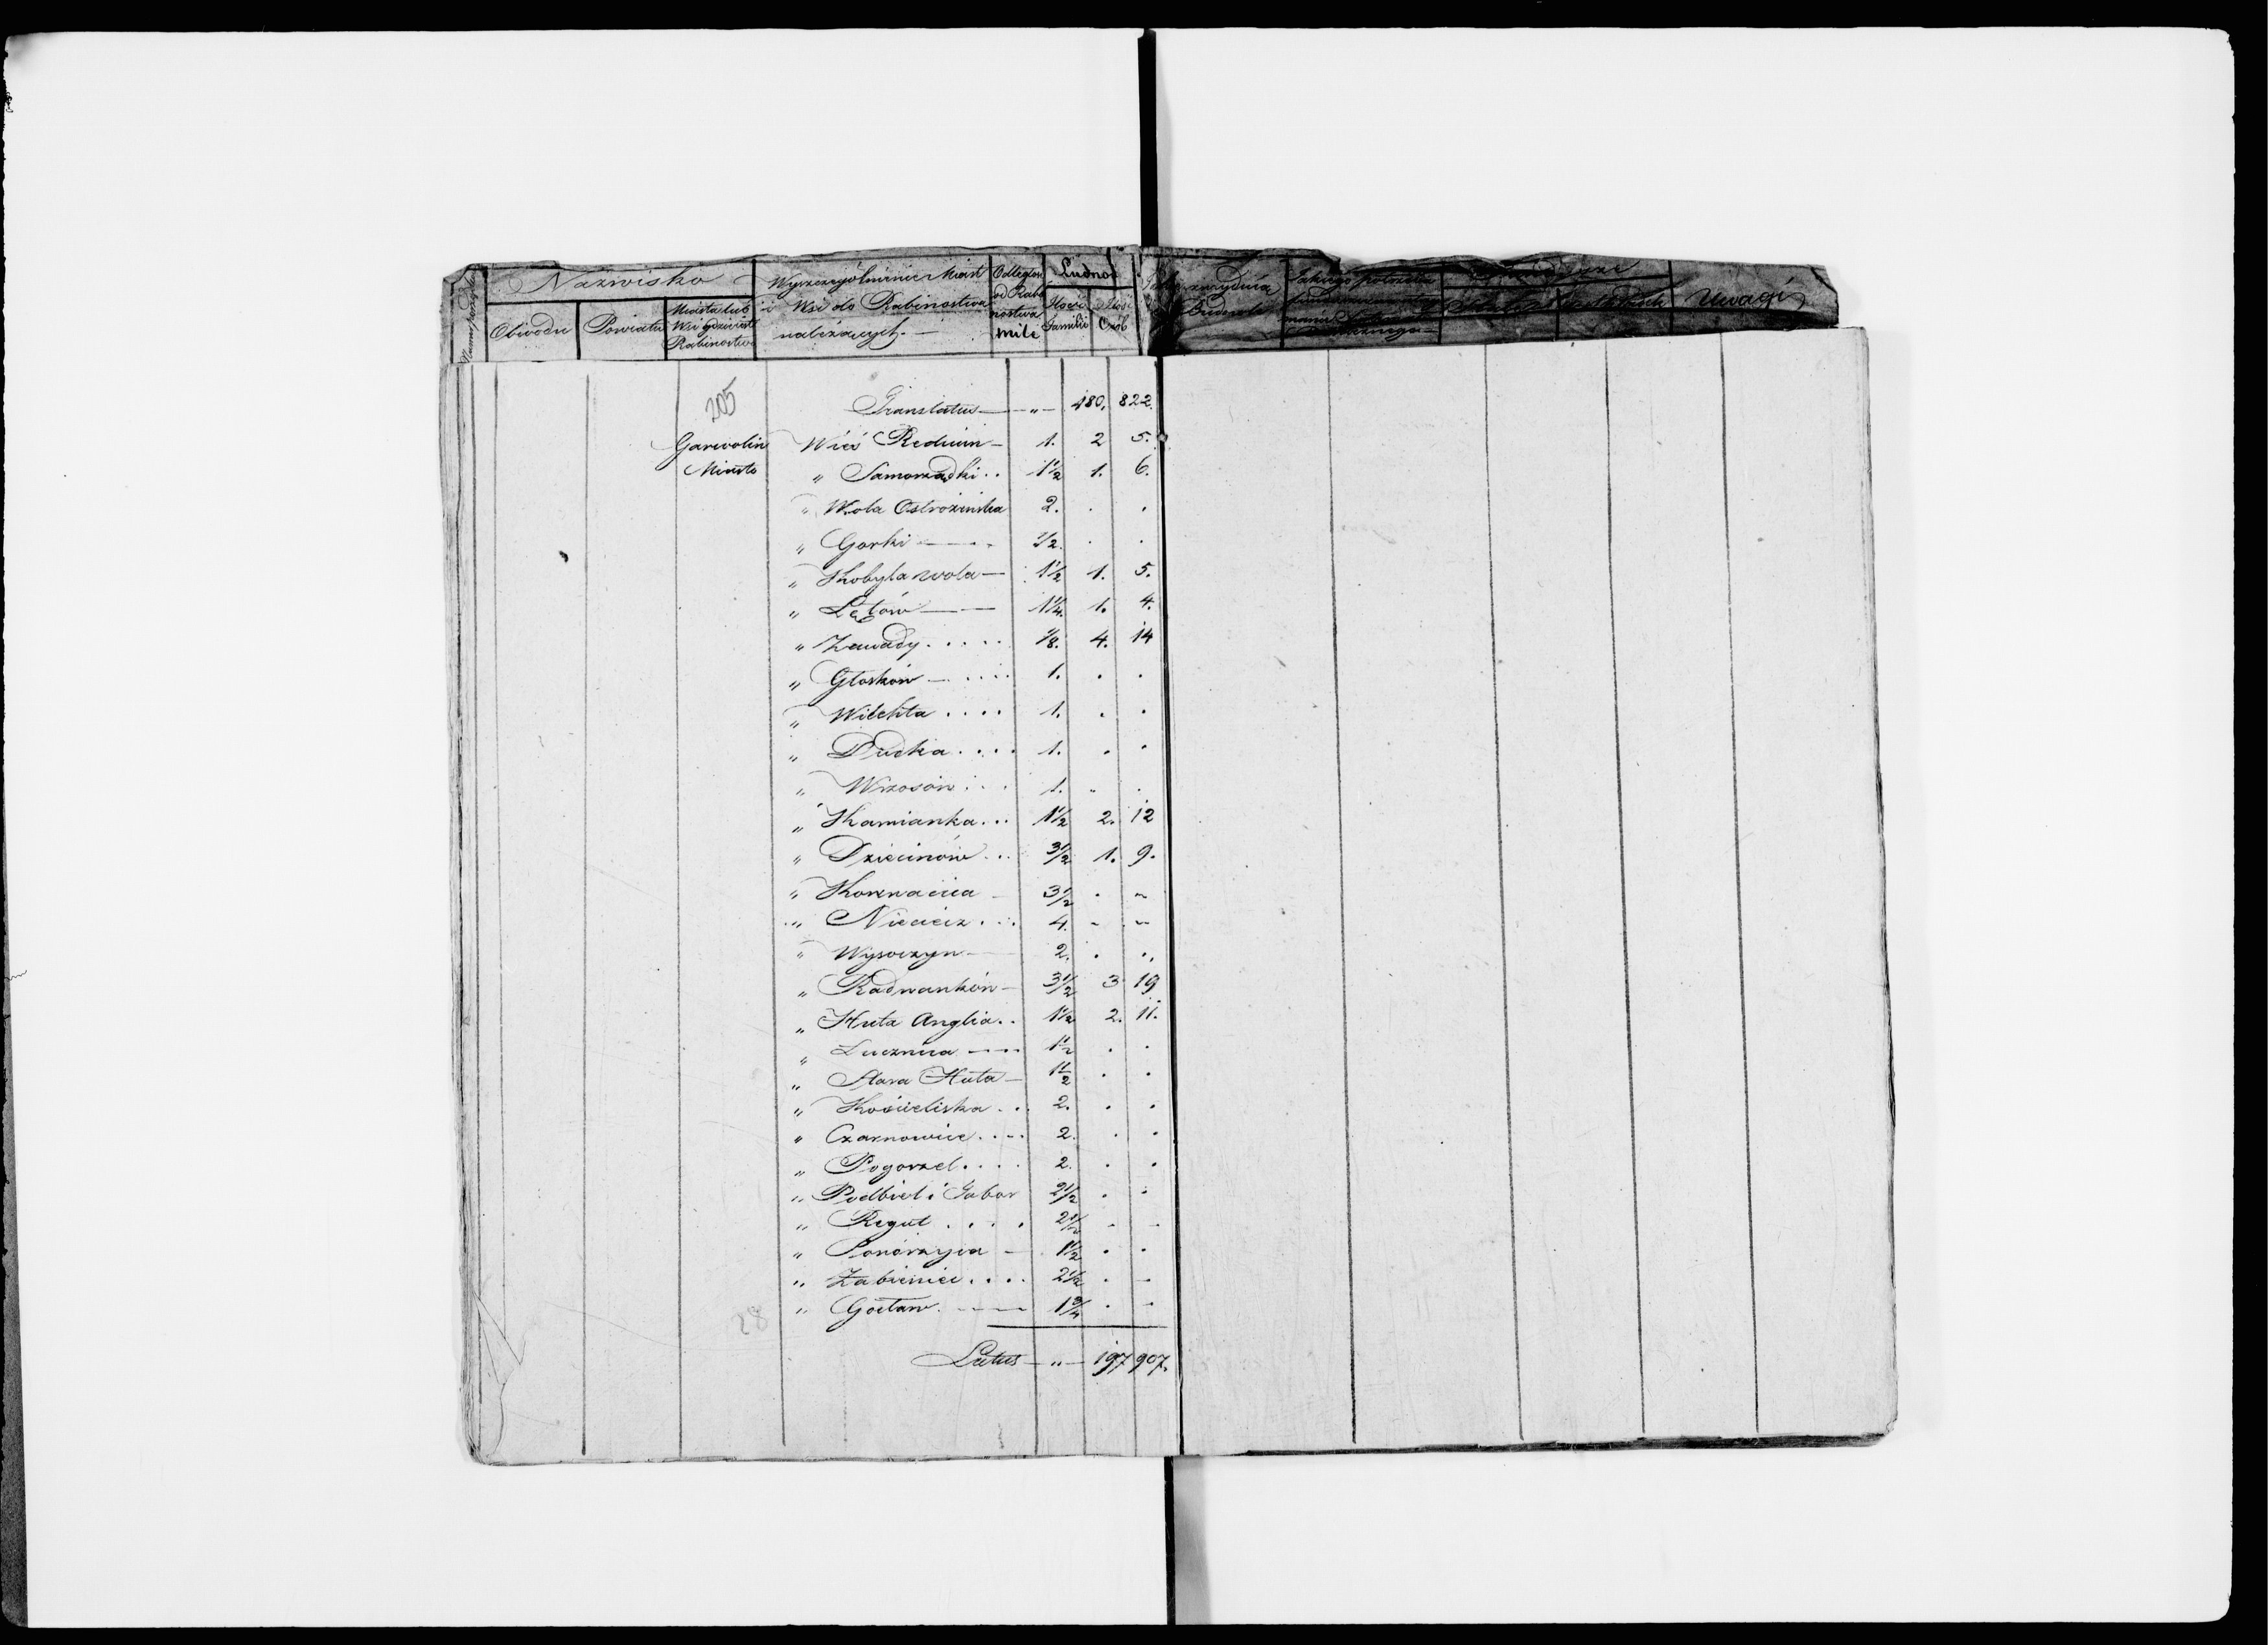 Nazwisko
Obwodu
Powiatu
Miasta lub
Wsi gdzie iest
Rabinostwo
Wyszczególnienie Miast
i Wsi do Rabinostwa
należących.
Odległość
od Rabi
nostwa
mile
Ludność
Ilość
Familii
Ilość
Osób
Uwagi
205
Translatus — „ — 180. 822.
Garwolin Wieś Reducin — 1. 2 5.
Miasto „ Samorządki . . 1 1/2 1. 6.
„ Wola Ostrożeńska 2. . .
„ Gorki — 1/2. . .
„ Kobyla wola — 1 1/2 1. 5.
„ Lętów — 1 1/4. 1. 4.
„ Zawady . . . . 1/8. 4. 14
„ Głosków — . . . . 1. . .
„ Wilchta . . . . 1. . .
„ Ducka . . . . 1. . .
„ Wrzosów . . . 1. „ .
„ Kamianka . . . 1 1/2 2. 12
„ Dziecinów . . . 3 1/2 1. 9.
„ Korznacica — 3 1/2 . ~
„ Niecicz . . . 4. ~ ~
„ Wysoczyn — 2. . .,
„ Radwanków — 3 1/2 3 19
„ Huta Anglia . . 1 1/2 2. 11.
„ Lucznica — 1 1/2 . .
„ Stara Huta — 1 1/2 . .
„ Kościeliska . . . 2. . .
„ Czarnowiec . . . . 2. . .
„ Pogorzel . . . . 2. . .
„ Podbiel i Gabor 2 1/2 . .
„ Regut . . . . 2 1/2 - -
„ Ponórzyca — 1 1/2 . .
„ Zabieniec . . . . 2 1/2 . -
„ Gocław . — 1 3/4 . .
28
Latus — „ — 197 907.